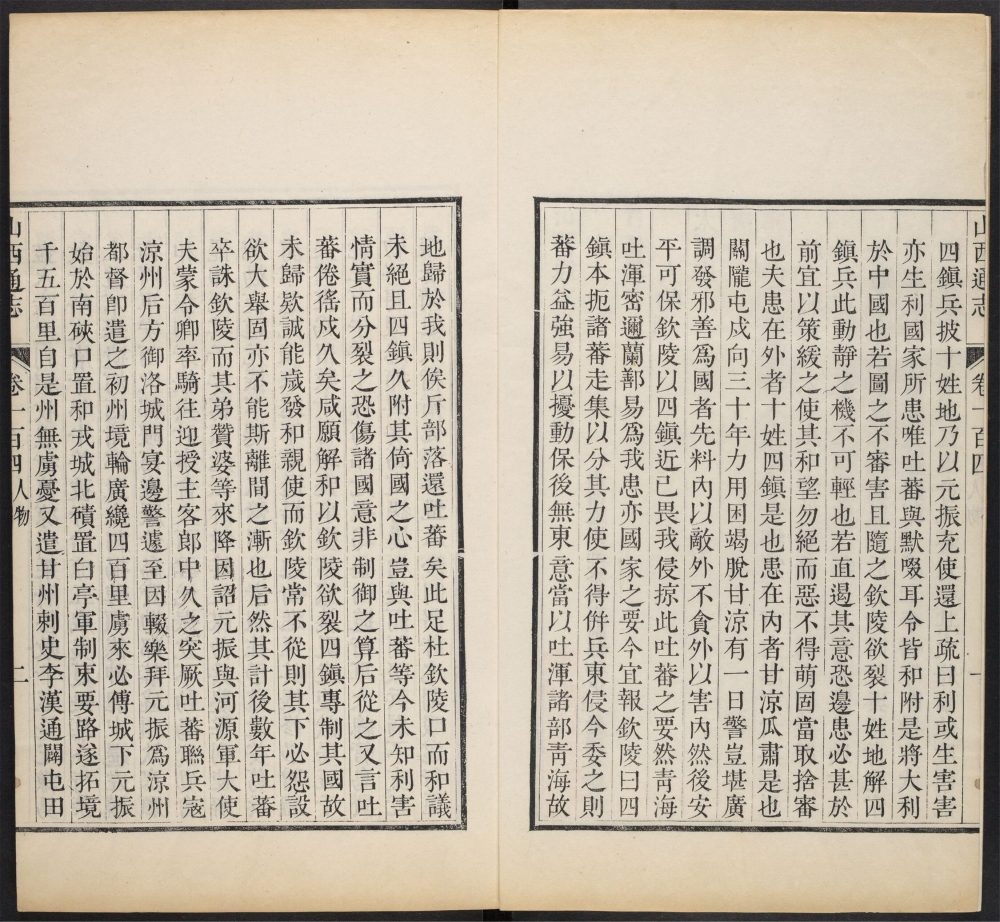 山西通志 卷一百四 一
四鎮兵披十姓地乃以元振充使還上疏曰利或生害害
亦生利國家所患唯吐蕃與默啜耳今皆和附是將大利
於中國也若圖之不審害且隨之欽陵欲裂十姓地解四
鎮兵此動靜之機不可輕也若直遏其意恐邊患必甚於
前宜以策緩之使其和望勿絕而惡不得萌固當取捨審
也夫患在外者十姓四鎮是也患在內者甘涼瓜肅是也
關隴屯戍向三十年力用困竭脫甘涼有一日警豈堪廣
調發邪善為國者先料內以敵外不貪外以害內然後安
平可保欽陵以四鎮近己畏我侵掠此吐蕃之要然青海
吐渾密邇蘭鄯易為我患亦國家之要今宜報欽陵曰四
鎮本扼諸蕃走集以分其力使不得併兵東侵今委之則
蕃力益強易以擾動保後無東意當以吐渾諸部靑海故
地歸於我則俟斤部落還吐蕃矣此足杜欽陵口而和議
未絕且四鎮久附其倚國之心豈與吐蕃等今未知利害
情實而分裂之恐傷諸國意非制御之算后從之又言吐
蕃倦徭戍久矣咸願解和以欽陵欲裂四鎮專制其國故
未歸欵誠能歲發和親使而欽陵常不從則其下必怨設
欲大舉固亦不能斯離間之漸也后然其計後數年吐蕃
卒誅欽陵而其弟贊婆等來降因詔元振與河源軍大使
夫蒙令卿率騎往迎授主客郎中久之突厥吐蕃聯兵寇
涼州后方御洛城門宴邊警遽至因輟樂拜元振為涼州
都督卽遣之初州境輪廣纔四百里虜來必傅城下元振
始於南硤口置和戎城北磧置白亭軍制束要路遂拓境
千五百里自是州無虜憂又遣甘州刺史李漢通闢屯田
山西通志 卷一百四 人物 二